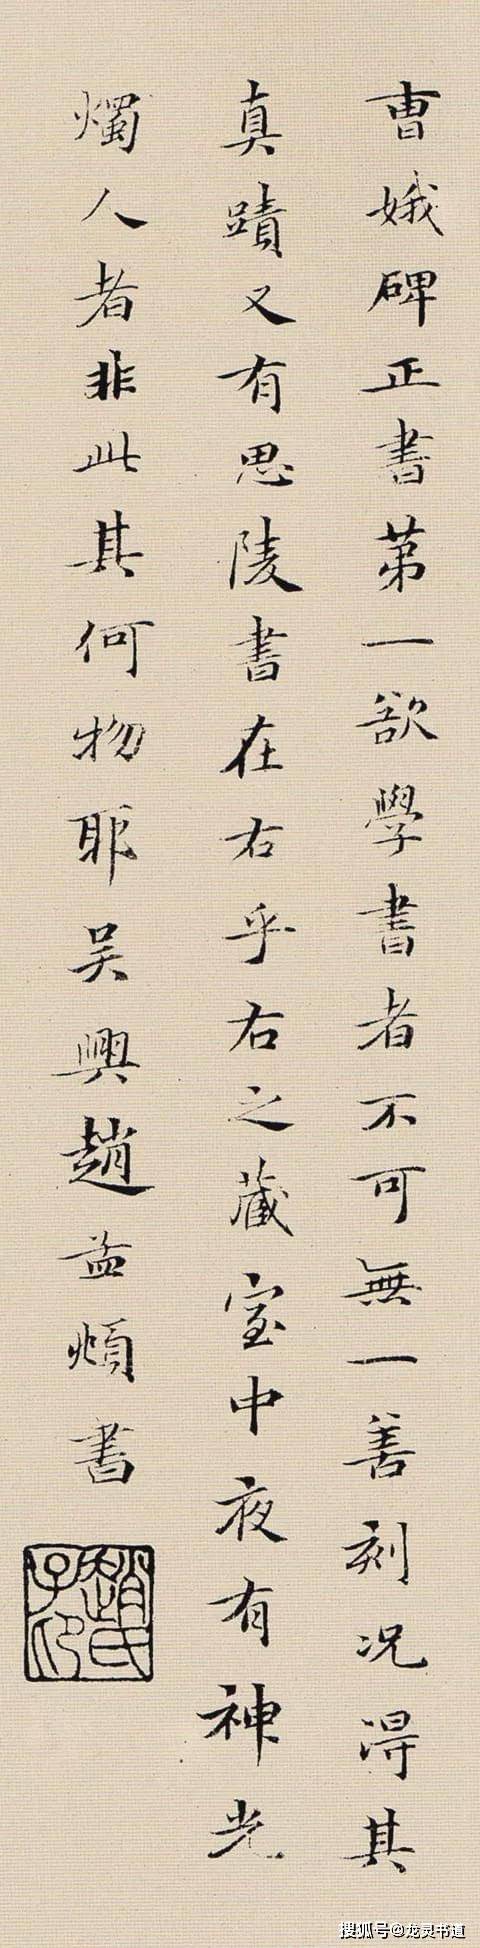 曹娥碑正書第一欲學書者不可無一善刻况得其
真蹟又有思陵書在右乎右之藏室中夜有神光
燭人者非此其何物耶吴興趙孟頫書
趙氏子印
搜狐号@龙灵书道